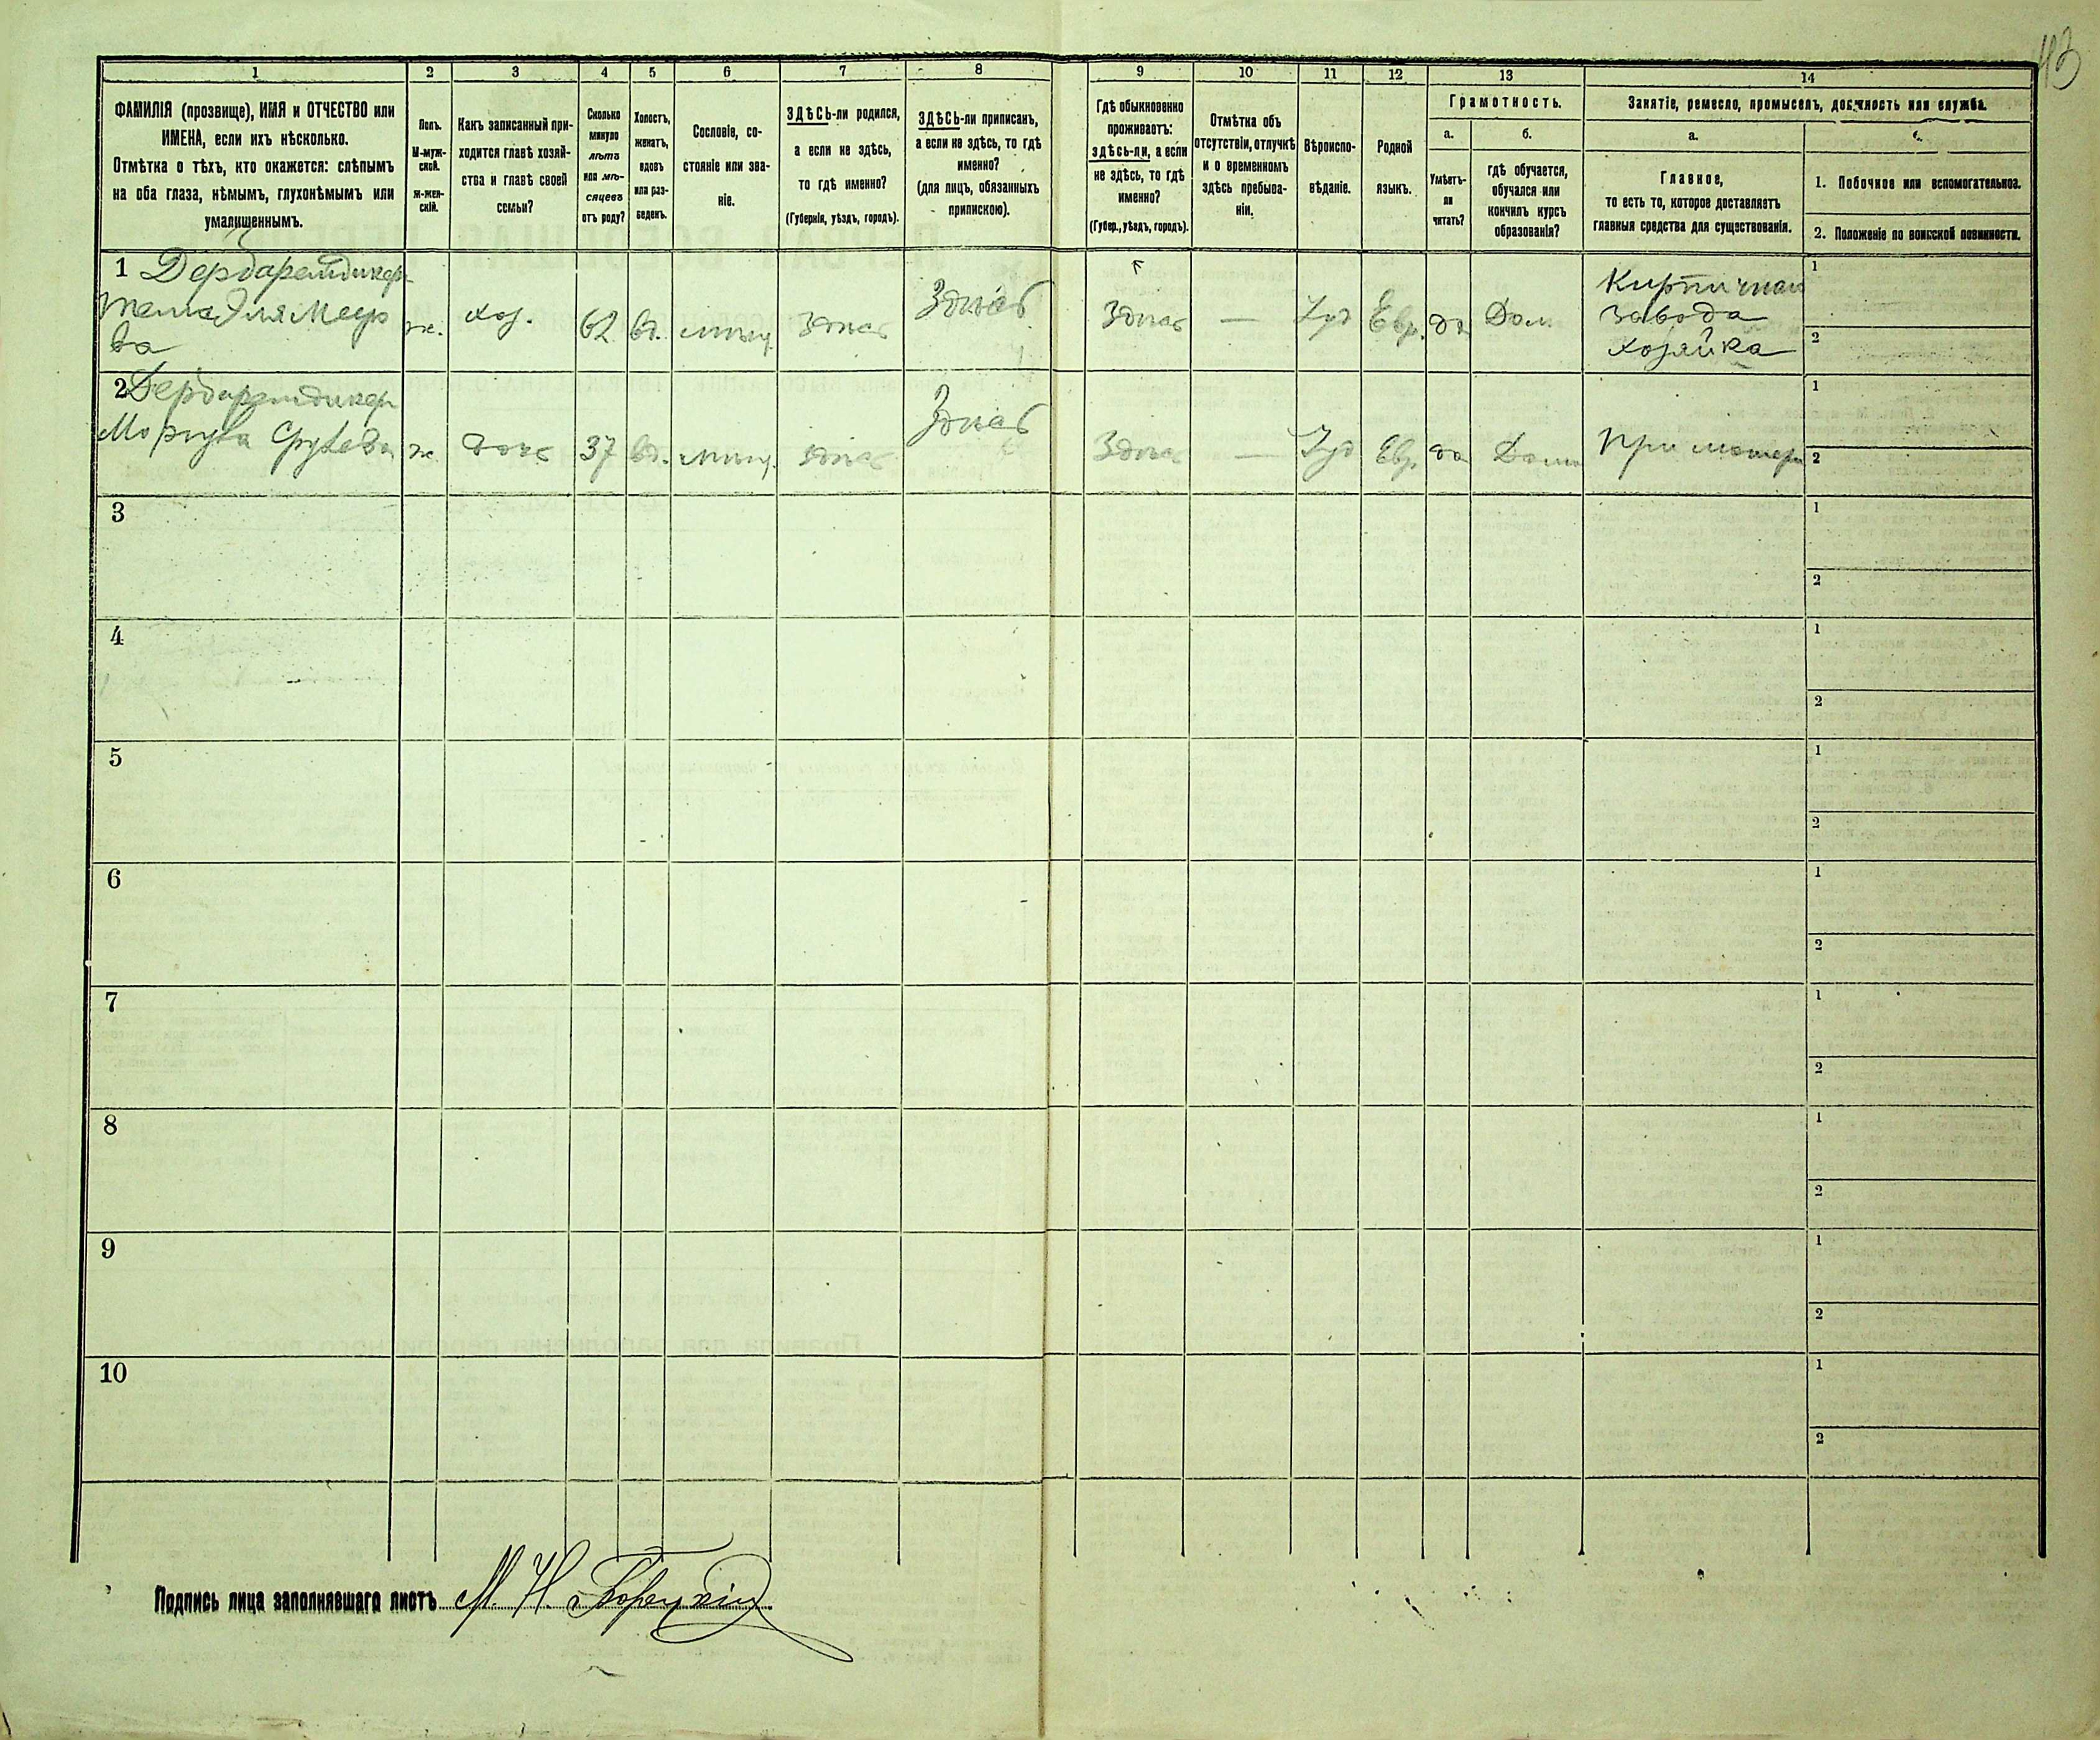 113
1 2 3 4 5 6 7 8 9 10 11 12 13 14
ФАМИЛІЯ (прозвище), ИМЯ и ОТЧЕСТВО или
ИМЕНА, если ихъ нѣсколько.
Отмѣтка о тѣхъ, кто окажется: слѣпымъ
на оба глаза, нѣмымъ, глухонѣмымъ или
умалишеннымъ.
Полъ.
М-муж-
ской.
Ж-жен-
скій.
Какъ записанный при-
ходится главѣ хозяй-
ства и главѣ своей
семьи?
Сколько
минуло
лѣтъ
или мѣ-
сяцевъ
отъ роду?
Холостъ,
женатъ,
вдовъ
или раз-
веденъ.
Сословіе, со-
стояніе или зва-
ніе.
ЗДѢСЬ-ли родился,
а если не здѣсь,
то гдѣ именно?
(Губернія, уѣздъ, городъ).
ЗДѢСЬ-ли приписанъ,
а если не здѣсь, то гдѣ
именно?
(для лицъ, обязанныхъ
припискою).
Гдѣ обыкновенно
проживаетъ:
здѣсь-ли, а если
не здѣсь, то гдѣ
именно?
(Губер., уѣздъ, городъ).
Отмѣтка объ
отсутствіи, отлучкѣ
и о временномъ
здѣсь пребыва-
ніи.
Вѣроиспо-
вѣданіе.
Родной
языкъ.
Грамотность.
а.
Умѣетъ-
ли
читать?
б.
гдѣ обучается,
обучался или
кончилъ курсъ
образованія?
Занятіе, ремесло, промыселъ, должность или служба.
а.
Главное,
то есть то, которое доставляетъ
главныя средства для существованія.
1. Побочное или вспомогательное.
2. Положеніе по воинской повинности.
1 Дердарендикер
ж. хоз. 62 вд. мѣщ. здѣсь Здѣсь Здѣсь — Іуд Евр. да Дом.
Кирпичнаго
завода
хозяйка
1
2
2 Дердарендикер
ж. дочь 37 вд. мѣщ. здѣсь Здѣсь Здѣсь — Іуд Евр. да Дома При матери
1
2
3
1
2
4
1
2
5
1
2
6
1
2
7
1
2
8
1
2
9
1
2
10
1
2
Подпись лица заполнявшаго листъ М. Н.